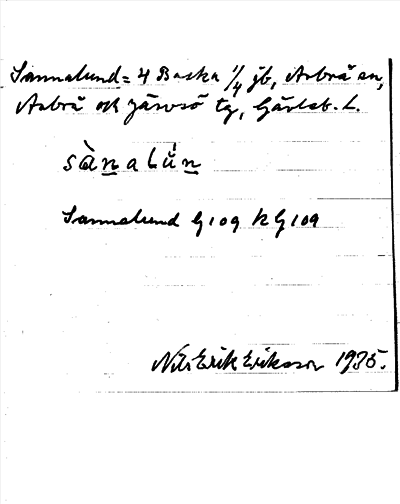 Sannalund = 4 Backa 1/4 jb, Arbrå sn,
Arbrå och Järvsö tg, Gävleb. L.
sànalún
Sannalund G109 KG109
Nils Erik Eriksson 1935.